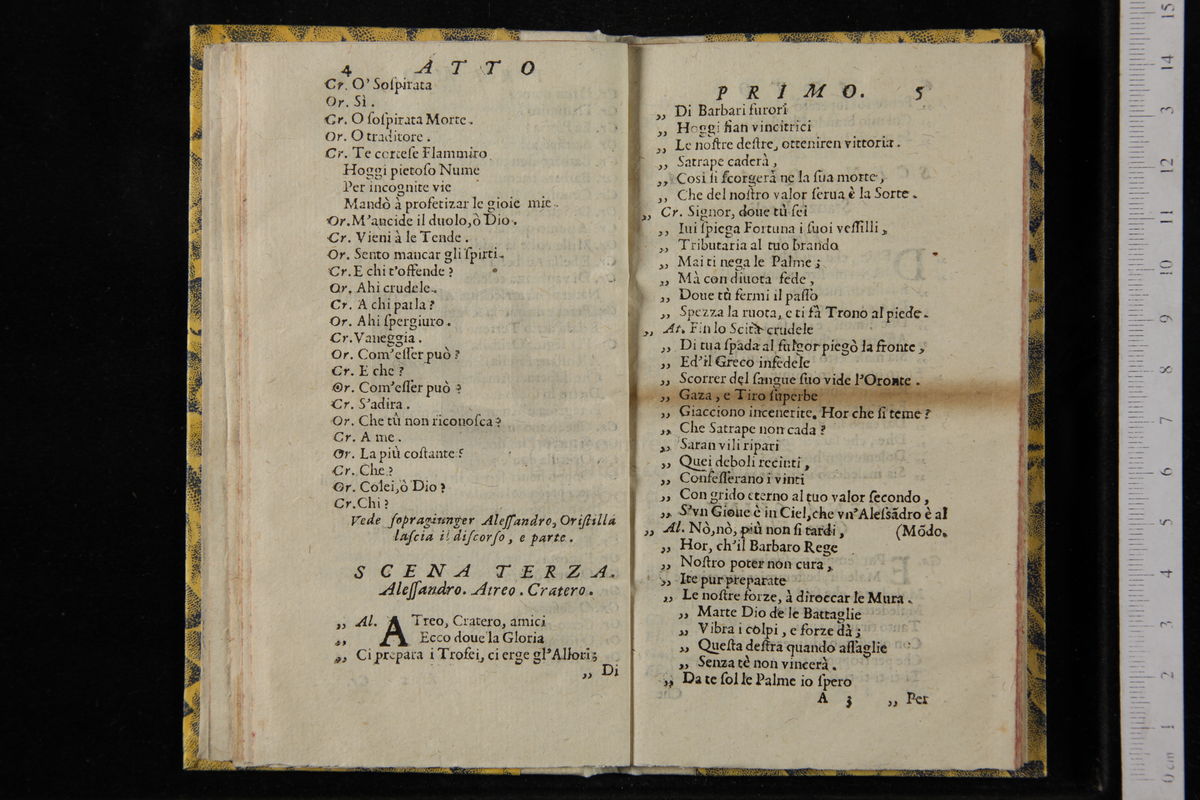 4 ATTO
Cr. O' Soſpirata
Or. Sì.
Cr. O ſoſpirata Morte.
Or. O traditore.
Cr. Te corteſe Flammiro
Hoggi pietoſo Nume
Per incognite vie
Mandò à profetizar le gioie mie.
Or. M'ancide il duolo, ò Dio.
Cr. Vieni à le Tende.
Or. Sento mancar gli ſpirti.
Cr. E chi t'offende?
Or. Ahi crudele.
Cr. A chi parla?
Or. Ahi ſpergiuro.
Cr. Vaneggia.
Or. Com'eſſer può?
Cr. E che?
Or. Com'eſſer può?
Cr. S'adira.
Or. Che tù non riconoſca?
Cr. A me.
Or. La più coſtante?
Cr. Che?
Or. Colei, ò Dio?
Cr. Chi?
Vede ſopragiunger Aleſſandro, Oriſtilla
laſcia il diſcorſo, e parte.
SCENA TERZA.
Aleſſandro. Atreo. Cratero.
„ Al. ATreo, Cratero, amici
„ Ecco doue la Gloria
„ Ci prepara i Trofei, ci erge gl'Allori;
„ Di
PRIMO. 5
„ Di Barbari furori
„ Hoggi fian vincitrici
„ Le noſtre deſtre, otteniren vittoria.
„ Satrape caderà,
„ Così ſi ſcorgerà ne la ſua morte,
„ Che del noſtro valor ſerua è la Sorte.
„ Cr. Signor, doue tù ſei
„ Iui ſpiega Fortuna i ſuoi veſſilli,
„ Tributaria al tuo brando
„ Mai ti nega le Palme;
„ Mà con diuota fede,
„ Doue tù fermi il paſſo
„ Spezza la ruota, e ti fà Trono al piede.
„ At. Fin lo Scita crudele
„ Di tua ſpada al fulgor piegò la fronte,
„ Ed'il Greco infedele
„ Scorrer del ſangue ſuo vide l'Oronte.
„ Gaza, e Tiro ſuperbe
„ Giacciono incenerite. Hor che ſi teme?
„ Che Satrape non cada?
„ Saran vili ripari
„ Quei deboli recinti,
„ Confeſſerano i vinti
„ Con grido eterno al tuo valor ſecondo,
„ S'vn Gioue è in Ciel, che vn'Aleſsãdro è al
„ Al. Nò, nò, più non ſi tardi, (Mõdo.
„ Hor, ch'il Barbaro Rege
„ Noſtro poter non cura,
„ Ite pur preparate
„ Le noſtre forze, à diroccar le Mura.
„ Marte Dio de le Battaglie
„ Vibra i colpi, e forze dà;
„ Queſta deſtra quando aſſaglie
„ Senza tè non vincerà.
„ Da te ſol le Palme io ſpero
A 3 „ Per